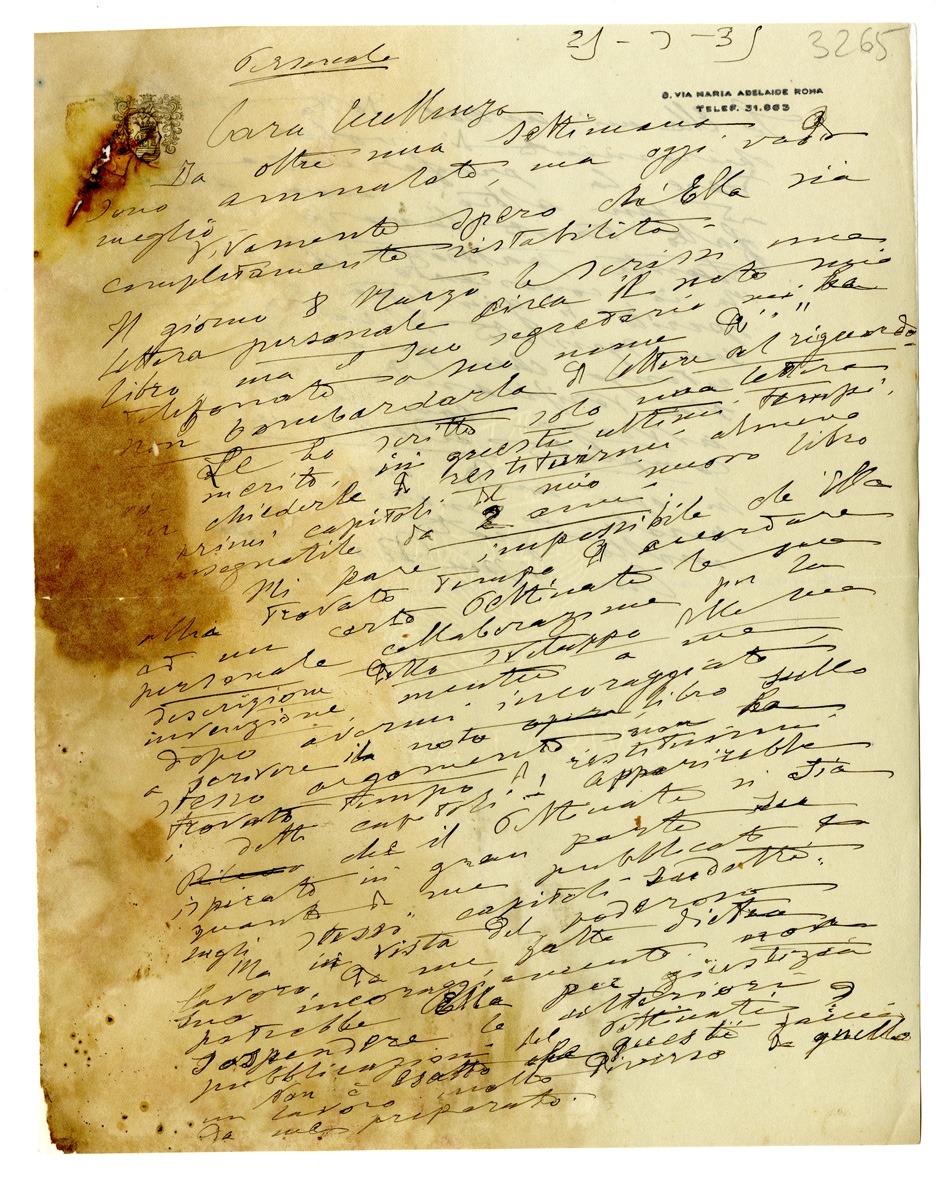 Personale
25 - 7 - 35
3265
8. VIA MARIA ADELAIDE ROMA
TELEF. 31.863
Cara Eccellenza
Da oltre una settimana
sono ammalato, ma oggi vado
meglio
Vivamente spero che Ella sia
completamente ristabilito
Il giorno 8 Marzo le scrissi una
lettera personale circa il noto mio
libro ma il suo segretario mi ha
telefonato a suo nome di ""
non bombardarla di lettere al riguardo
Le ho scritto solo una lettera
in merito, in questi ultimi tempi,
per chiederle di restituirmi almeno
i primi capitoli del mio nuovo libro
consegnatile da 2 anni
Mi pare impossibile che Ella
abbia trovato tempo di accordare
ad un certo Ottinate la sua
personale collaborazione per la
descrizione dello sviluppo della mia
invenzione, mentre a me
dopo avermi incoraggiato
a scrivere il noto opera libro sullo
stesso argomento non ha
trovato tempo di restituirmi
i detti capitoli. Apparirebbe
che il Ottinate si sia
ispirato in gran parte su
quanto da me pubblicato e
sugli stessi capitoli suddetti.
Ma in vista del poderoso
lavoro da me fatto dietro
suo incoraggiamento non
potrebbe Ella per giustizia
sospendere le ulteriori
pubblicazioni del Ottinate?
Non è esatto che questi faccia
un lavoro molto diverso da quello
da me preparato.